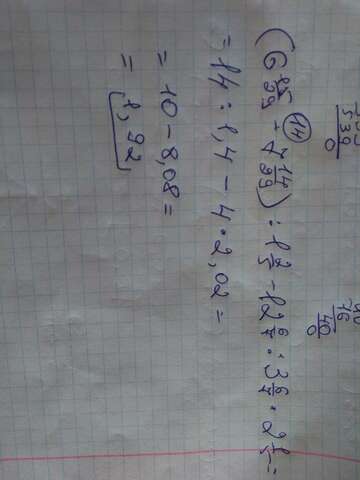 (6 15/29 + 7 14/29) : 1 2/5 - 12 6/7 : 3 6/7 · 2
14
= 14 : 1,4 - 4 · 2,02 =
= 10 - 8,08 =
= 1,92
539
0
76
40
0